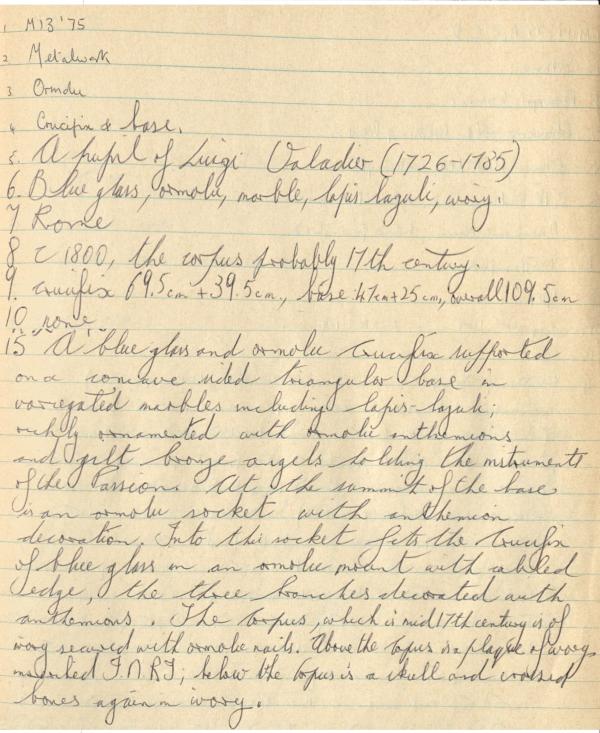 1 M13 '75
2 Metalwork
3 Ormolu
4 Crucifix & base.
5. A pupil of Luigi Valadier (1726-1785)
6. Blue glass, ormolu, marble, lapis lazuli, ivory.
7 Rome
8 c 1800, the corpus probably 17th century.
9. crucifix 69.5cm + 39.5cm, base 47cm + 25cm, overall 109.5cm
10 none
15 A blue glass and ormolu crucifix supported
on a concave sided triangular base in
variegated marbles including lapis-lazuli;
richly ornamented with ormolu anthemions
and gilt bronze angels holding the instruments
of the Passion. At the summit of the base
is an ormolu socket with anthemion
decoration. Into this socket fits the Crucifix
of blue glass in an ormolu mount with cabled
edge, the three branches decorated with
anthemions. The corpus, which is mid 17th century is of
ivory secured with ormolu nails. Above the corpus is a plaque of ivory
inscribed I.N.R.I; below the corpus is a skull and crossed
bones again in ivory.